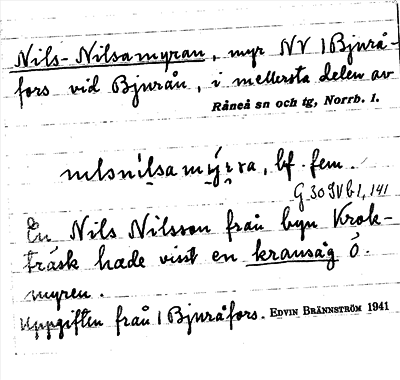 Nils-Nilsamyran, myr NV 1 Bjurå-
fors vid Bjurån, i mellersta delen av
Råneå sn och tg, Norrb. l.
nɩlsnílsa mýrra, bf. fem.
G 30 IV b 1, 141
En Nils Nilsson från byn Krok-
träsk hade visst en kransåg å
myren.
Uppgiften från 1 Bjuråfors. EDVIN BRÄNNSTRÖM 1941